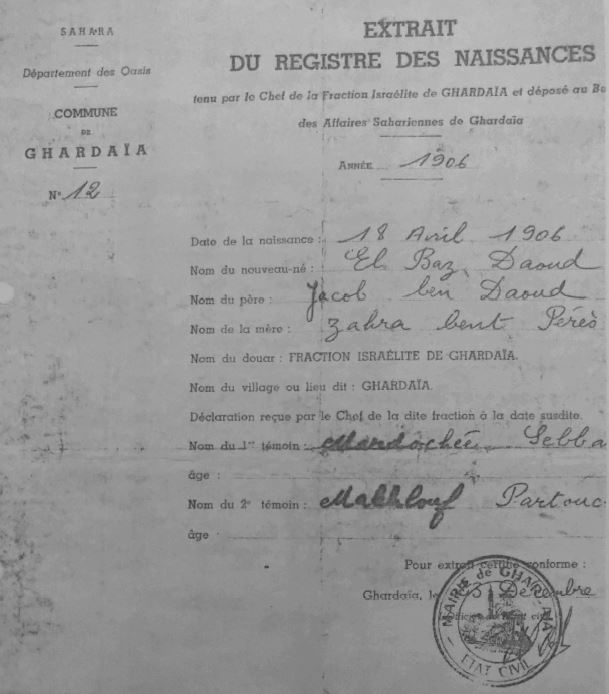 SAHARA
Département des Oasis
COMMUNE
DE
GHARDAÏA
N° 12
EXTRAIT
DU REGISTRE DES NAISSANCES
tenu par le Chef de la Fraction Israélite de GHARDAÏA et déposé au
des Affaires Sahariennes de Ghardaïa
ANNÉE 1906
Date de la naissance : 18 Avril 1906
Nom du nouveau-né : El Baz Daoud
Nom du père : Jacob ben Daoud
Nom de la mère : Zahra bent Pérès
Nom du douar : FRACTION ISRAÉLITE DE GHARDAÏA.
Nom du village ou lieu dit : GHARDAÏA.
Déclaration reçue par le Chef de la dite fraction à la date susdite.
Nom du 1er témoin : Mardochée Sebba
âge :
Nom du 2e témoin : Makhlouf Partouc
âge :
Pour extrait certifié conforme :
Ghardaïa, le 23 Décembre
MAIRIE de GHARDAIA
ETAT CIVIL